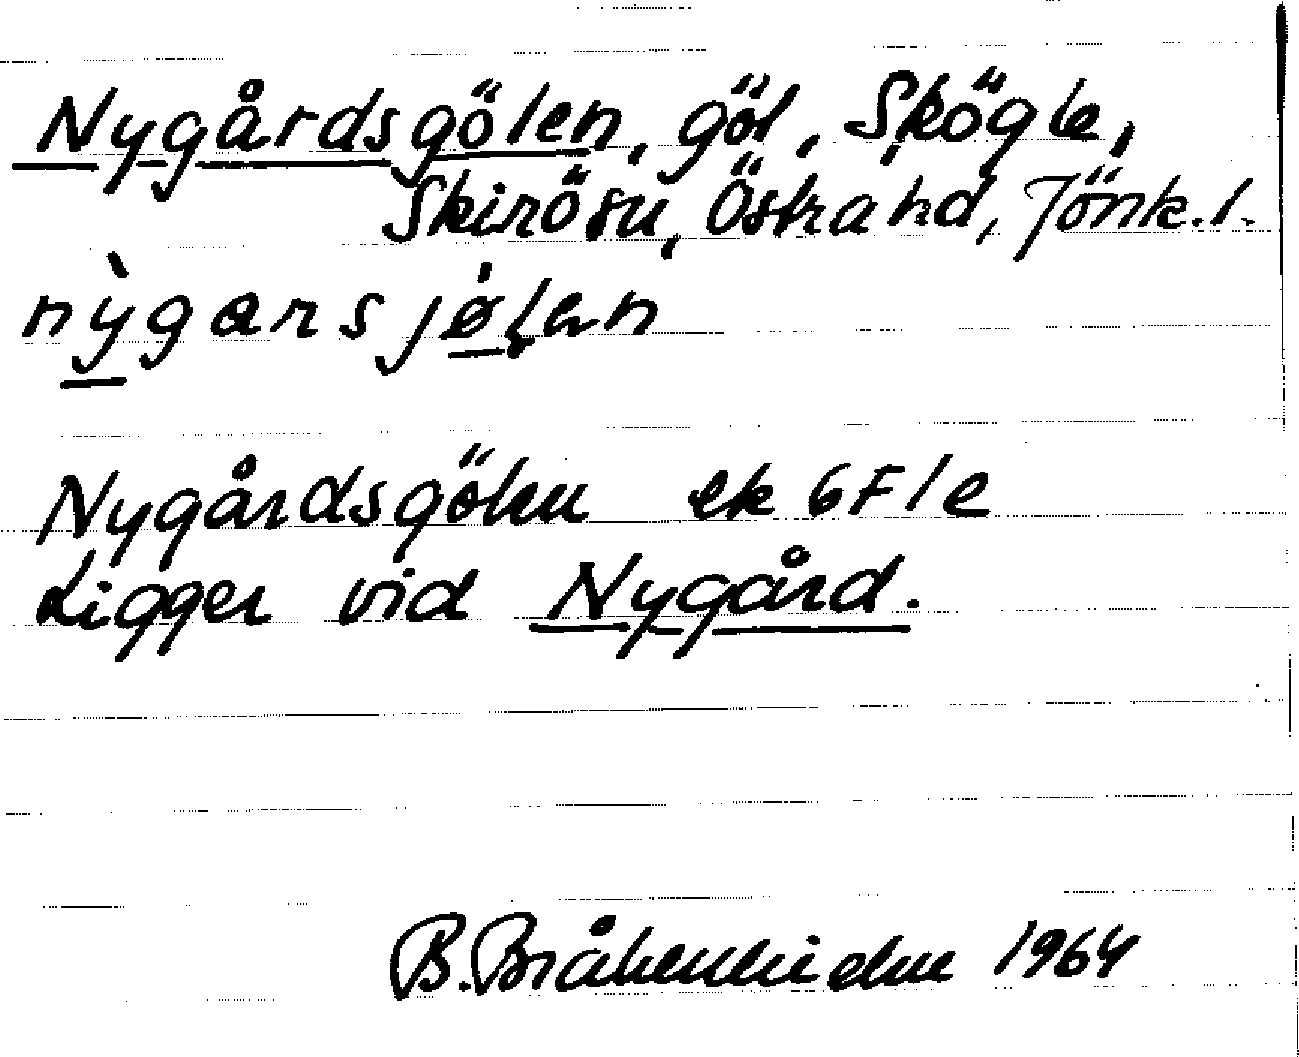 Nygårdsgölen, göl, Skögle,
Skirö sn, Östra hd, Jönk. l.
nỳgarsjø̀len
Nygårdsgölen ek 6F1e
Ligger vid Nygård.
B. Bråkenhielm 1964